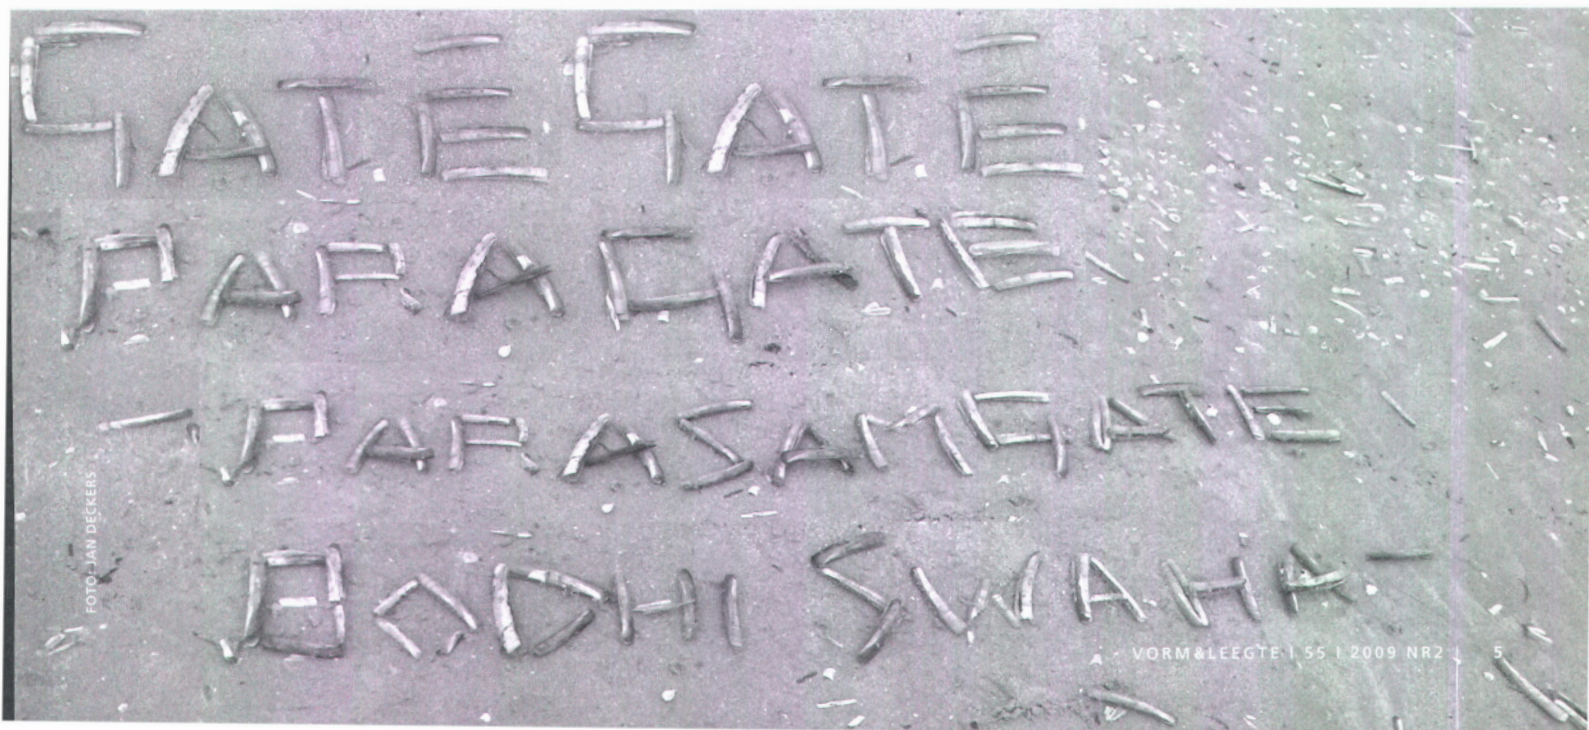 GATE GATE
PARAGATE
PARASAMGATE
BODHI SWAHA
FOTO: JAN DECKERS
VORM&LEEGTE | 55 | 2009 NR2 | 5